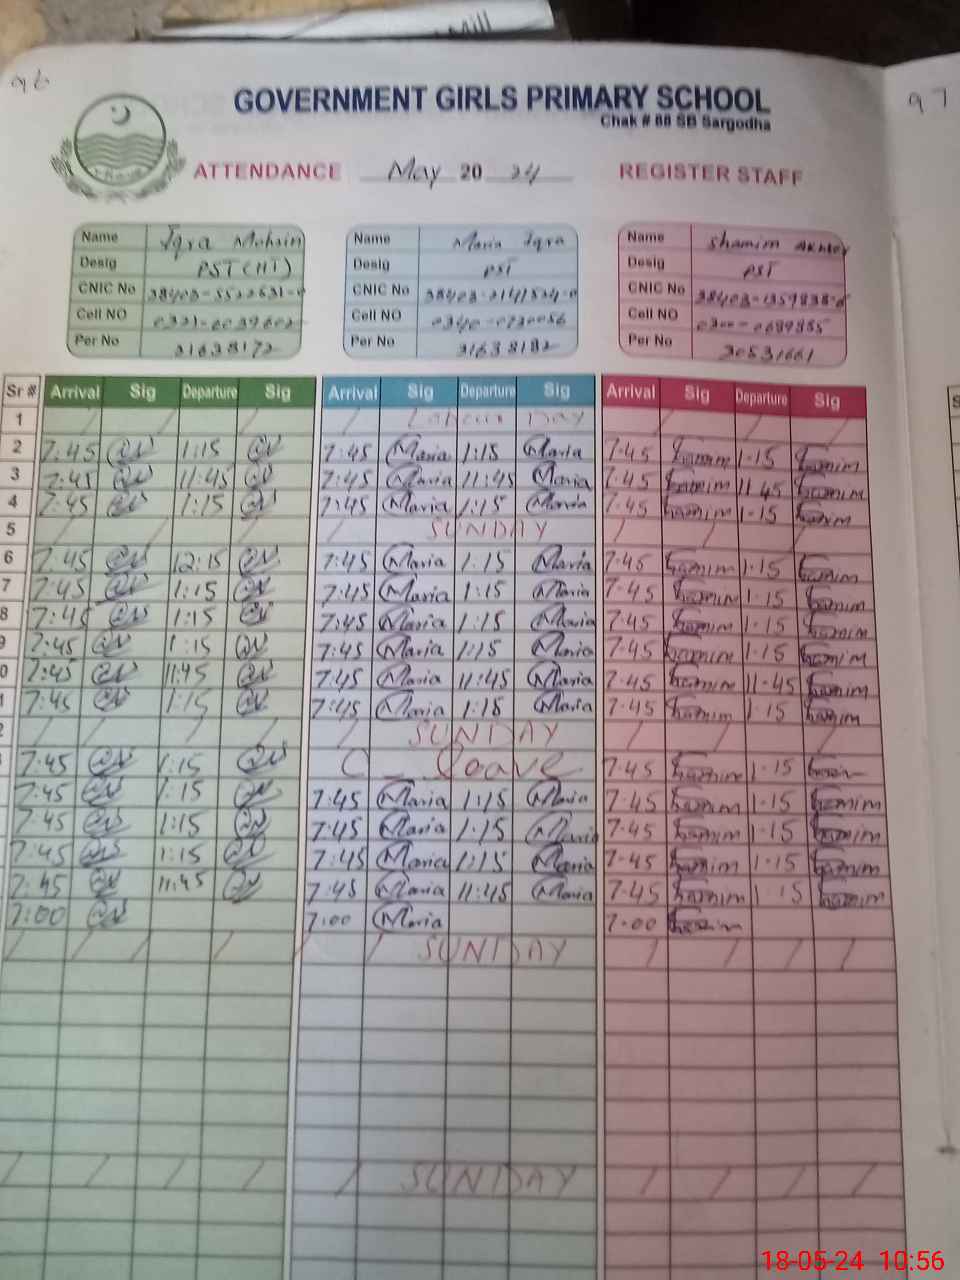 Mill
96
97
GOVERNMENT GIRLS PRIMARY SCHOOL
Chak # 88 SB Sargodha
ATTENDANCE May 20 24 REGISTER STAFF
Name Iqra Mohsin Name Maria Iqra Name Shamim Akhtar
Desig PST (HT) Desig PST Desig PST
CNIC No CNIC No CNIC No
Cell NO Cell NO Cell NO
Per No 31638172 Per No 31638182 Per No 30531661
Sr # Arrival Sig Departure Sig Arrival Sig Departure Sig Arrival Sig Departure Sig
1 Labour Day
2 7:45 1:15 7:45 Maria 1:15 Maria 7-45 Shamim 1-15 Shamim
3 7:45 11:45 7:45 Maria 11:45 Maria 7-45 Shamim 11-45 Shamim
4 7:45 1:15 7:45 Maria 1:15 Maria 7-45 Shamim 1-15 Shamim
5 SUNDAY
6 7:45 12:15 7:45 Maria 1:15 Maria 7-45 Shamim 1-15 Shamim
7 7:45 1:15 7:45 Maria 1:15 Maria 7-45 Shamim 1-15 Shamim
8 7:45 1:15 7:45 Maria 1:15 Maria 7-45 Shamim 1-15 Shamim
9 7:45 1:15 7:45 Maria 1:15 Maria 7-45 Shamim 1-15 Shamim
0 7:45 11:45 7:45 Maria 11:45 Maria 7-45 Shamim 11-45 Shamim
1 7:45 1:15 7:45 Maria 1:15 Maria 7-45 Shamim 1-15 Shamim
2 SUNDAY
7:45 1:15 C_ Leave 7-45 Shamim 1-15
7:45 1:15 7:45 Maria 1:15 Maria 7-45 Shamim 1-15 Shamim
7:45 1:15 7:45 Maria 1:15 Maria 7-45 Shamim 1-15 Shamim
7:45 1:15 7:45 Maria 1:15 Maria 7-45 Shamim 1-15 Shamim
7:45 11:45 7:45 Maria 11:45 Maria 7-45 Shamim 1 15 Shamim
7:00 7:00 Maria 7-00 Shamim
SUNDAY
SUNDAY
18-05-24 10:56